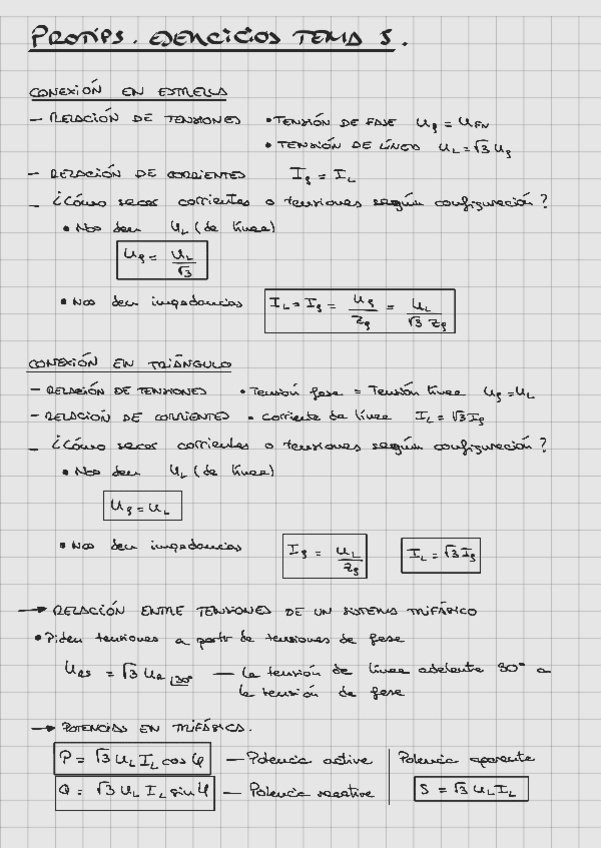 PROTIPS. EJERCICIOS TEMA 5.
CONEXIÓN EN ESTRELLA
– RELACIÓN DE TENSIONES • TENSIÓN DE FASE U_f = U_FN
• TENSIÓN DE LÍNEA U_L = √3 U_f
– RELACIÓN DE CORRIENTES I_f = I_L
– ¿Cómo sacar corrientes o tensiones según configuración?
• Nos dan U_L (de línea)
U_f = U_L / √3
• Nos dan impedancias I_L = I_f = U_f / Z_f = U_L / √3 Z_f
CONEXIÓN EN TRIÁNGULO
– RELACIÓN DE TENSIONES • Tensión fase = Tensión línea U_f = U_L
– RELACIÓN DE CORRIENTES • Corriente de línea I_L = √3 I_f
– ¿Cómo sacar corrientes o tensiones según configuración?
• Nos dan U_L (de línea)
U_f = U_L
• Nos dan impedancias I_f = U_L / Z_f I_L = √3 I_f
→ RELACIÓN ENTRE TENSIONES DE UN SISTEMA TRIFÁSICO
• Piden tensiones a partir de tensiones de fase
U_RS = √3 U_R |30° — la tensión de línea adelanta 30° a
la tensión de fase
→ POTENCIAS EN TRIFÁSICA.
P = √3 U_L I_L cos φ — Potencia activa | Potencia aparente
Q = √3 U_L I_L sin φ — Potencia reactiva | S = √3 U_L I_L